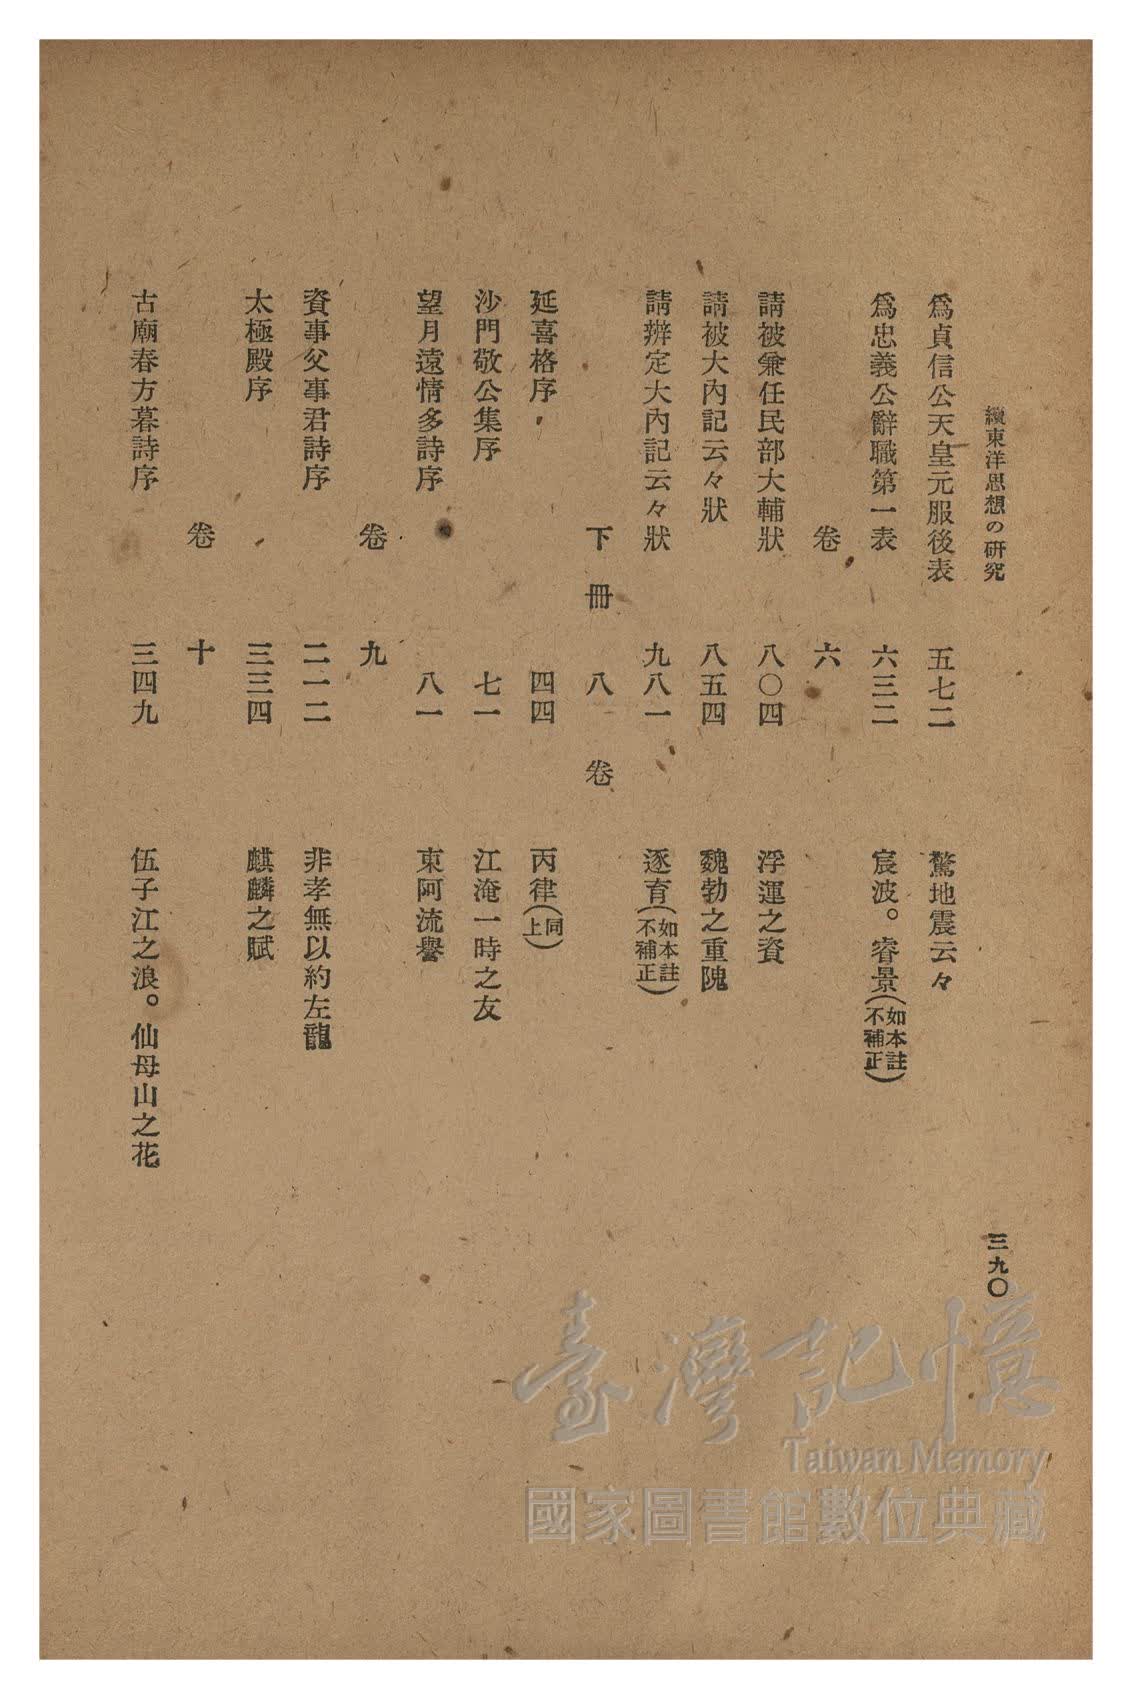 續東洋思想の研究
三九〇
爲貞信公天皇元服後表 五七二 驚地震云々
爲忠義公辭職第一表 六三二 宸波。睿景(如本註不補正)
卷 六
請被兼任民部大輔狀 八〇四 浮運之資
請被大內記云々狀 八五四 魏勃之重隗
請辨定大內記云々狀 九八一 逐育(如本註不補正)
下冊 八 卷
延喜格序 四四 丙律(同上)
沙門敬公集序 七一 江淹一時之友
望月遠情多詩序 八一 東阿流譽
卷 九
資事父事君詩序 二一二 非孝無以約左龍
太極殿序 三三四 麒麟之賦
卷 十
古廟春方暮詩序 三四九 伍子江之浪。仙母山之花
臺灣記憶
Taiwan Memory
國家圖書館數位典藏